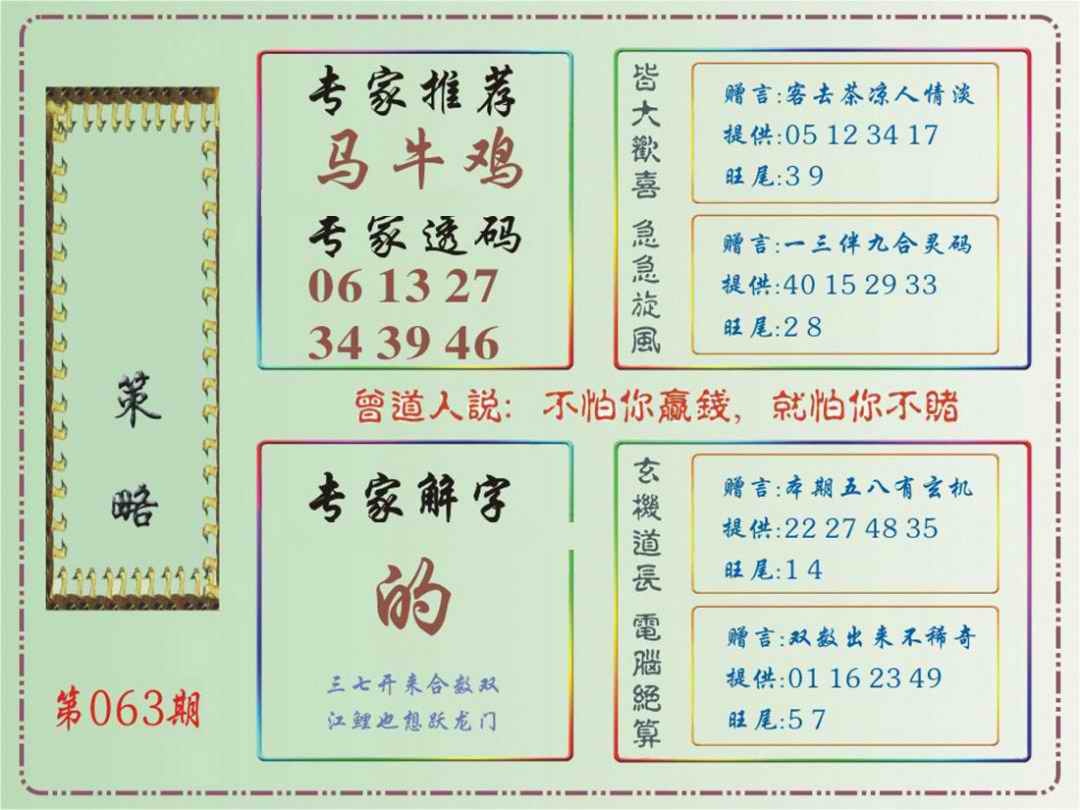 策略
第063期
专家推荐
马牛鸡
专家透码
06 13 27
34 39 46
皆大歡喜
赠言:客去茶凉人情淡
提供:05 12 34 17
旺尾:3 9
急急旋风
赠言:一三伴九合灵码
提供:40 15 29 33
旺尾:2 8
曾道人説: 不怕你贏錢, 就怕你不賭
专家解字
的
三七开来合数双
江鲤也想跃龙门
玄機道長
赠言:本期五八有玄机
提供:22 27 48 35
旺尾:1 4
電腦絕算
赠言:双数出来不稀奇
提供:01 16 23 49
旺尾:5 7